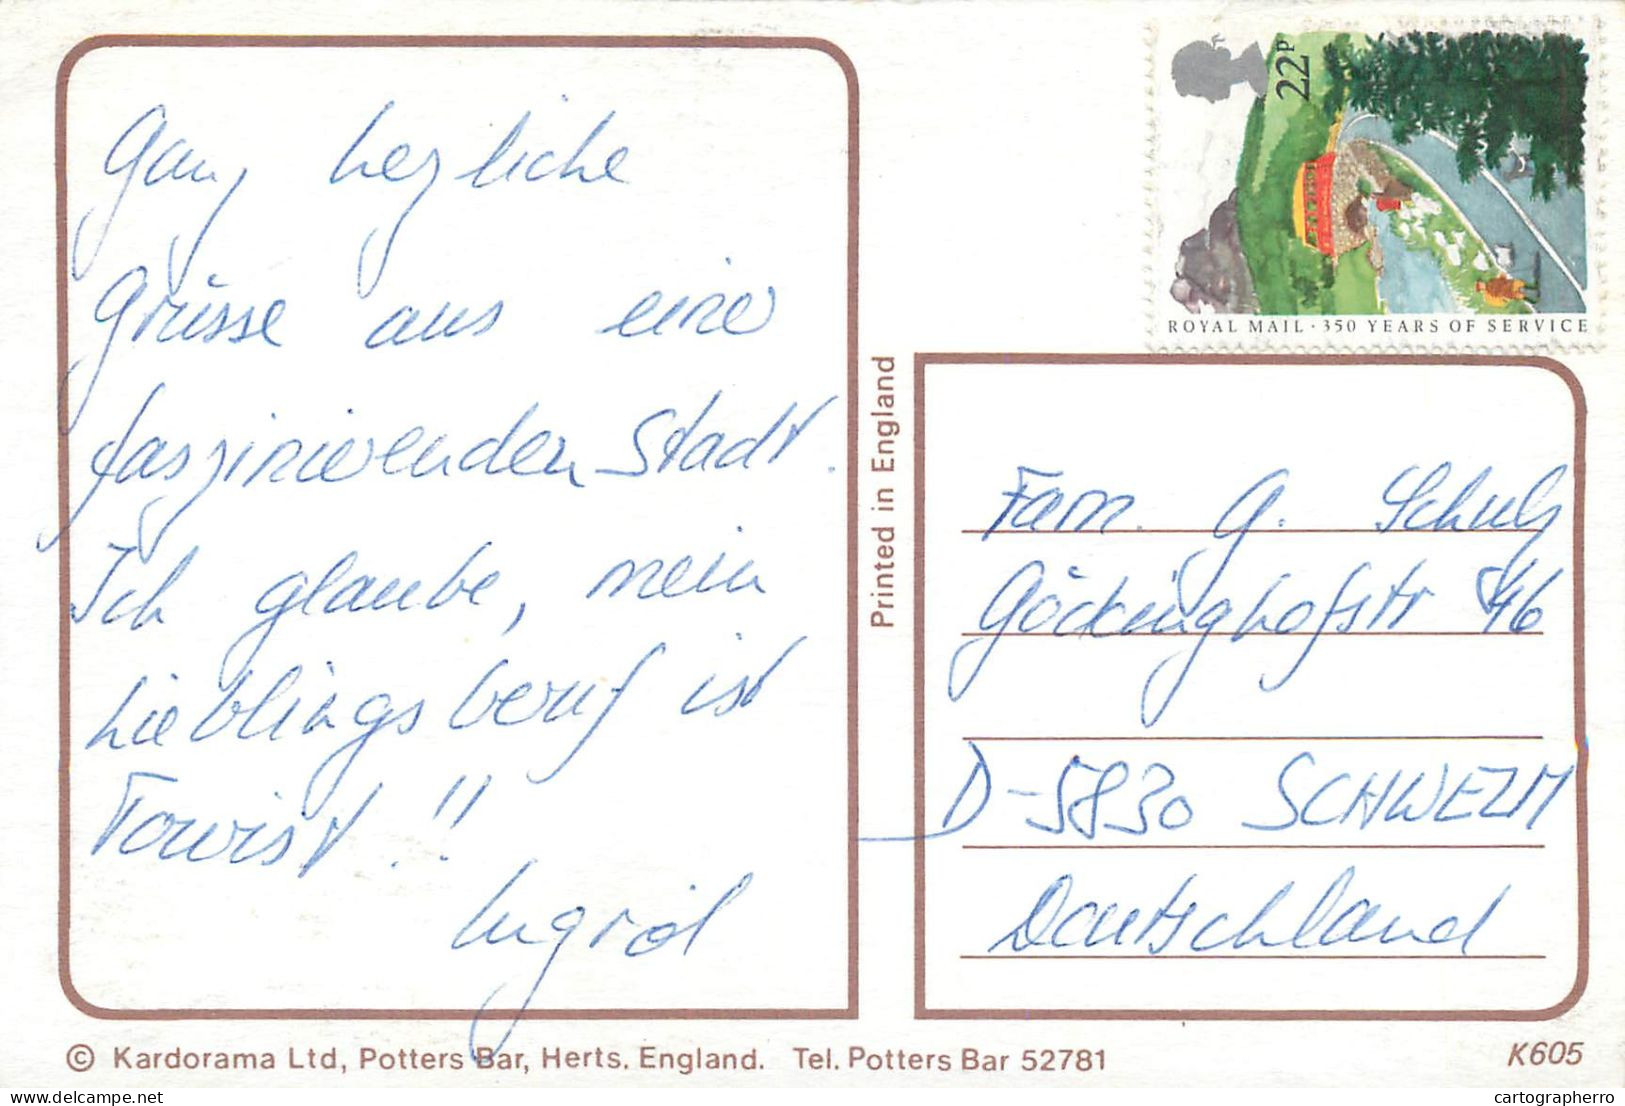 Ganz herzliche
Grüsse aus einer
faszinierenden Stadt.
Ich glaube, mein
Lieblingsberuf ist
Tourist!!
Ingrid
22P
ROYAL MAIL · 350 YEARS OF SERVICE
Printed in England
Fam. G. Schulz
Göckinghofstr 46
D-5830 SCHWELM
Deutschland
© Kardorama Ltd, Potters Bar, Herts, England. Tel. Potters Bar 52781
K605
cartographerro